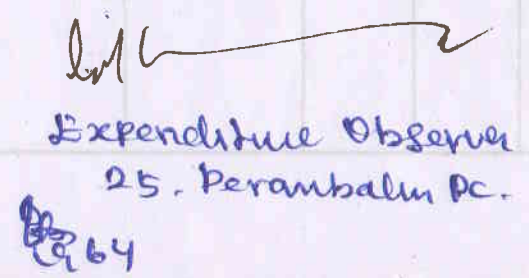 Expenditure Observer
25. Perambalur PC.
64